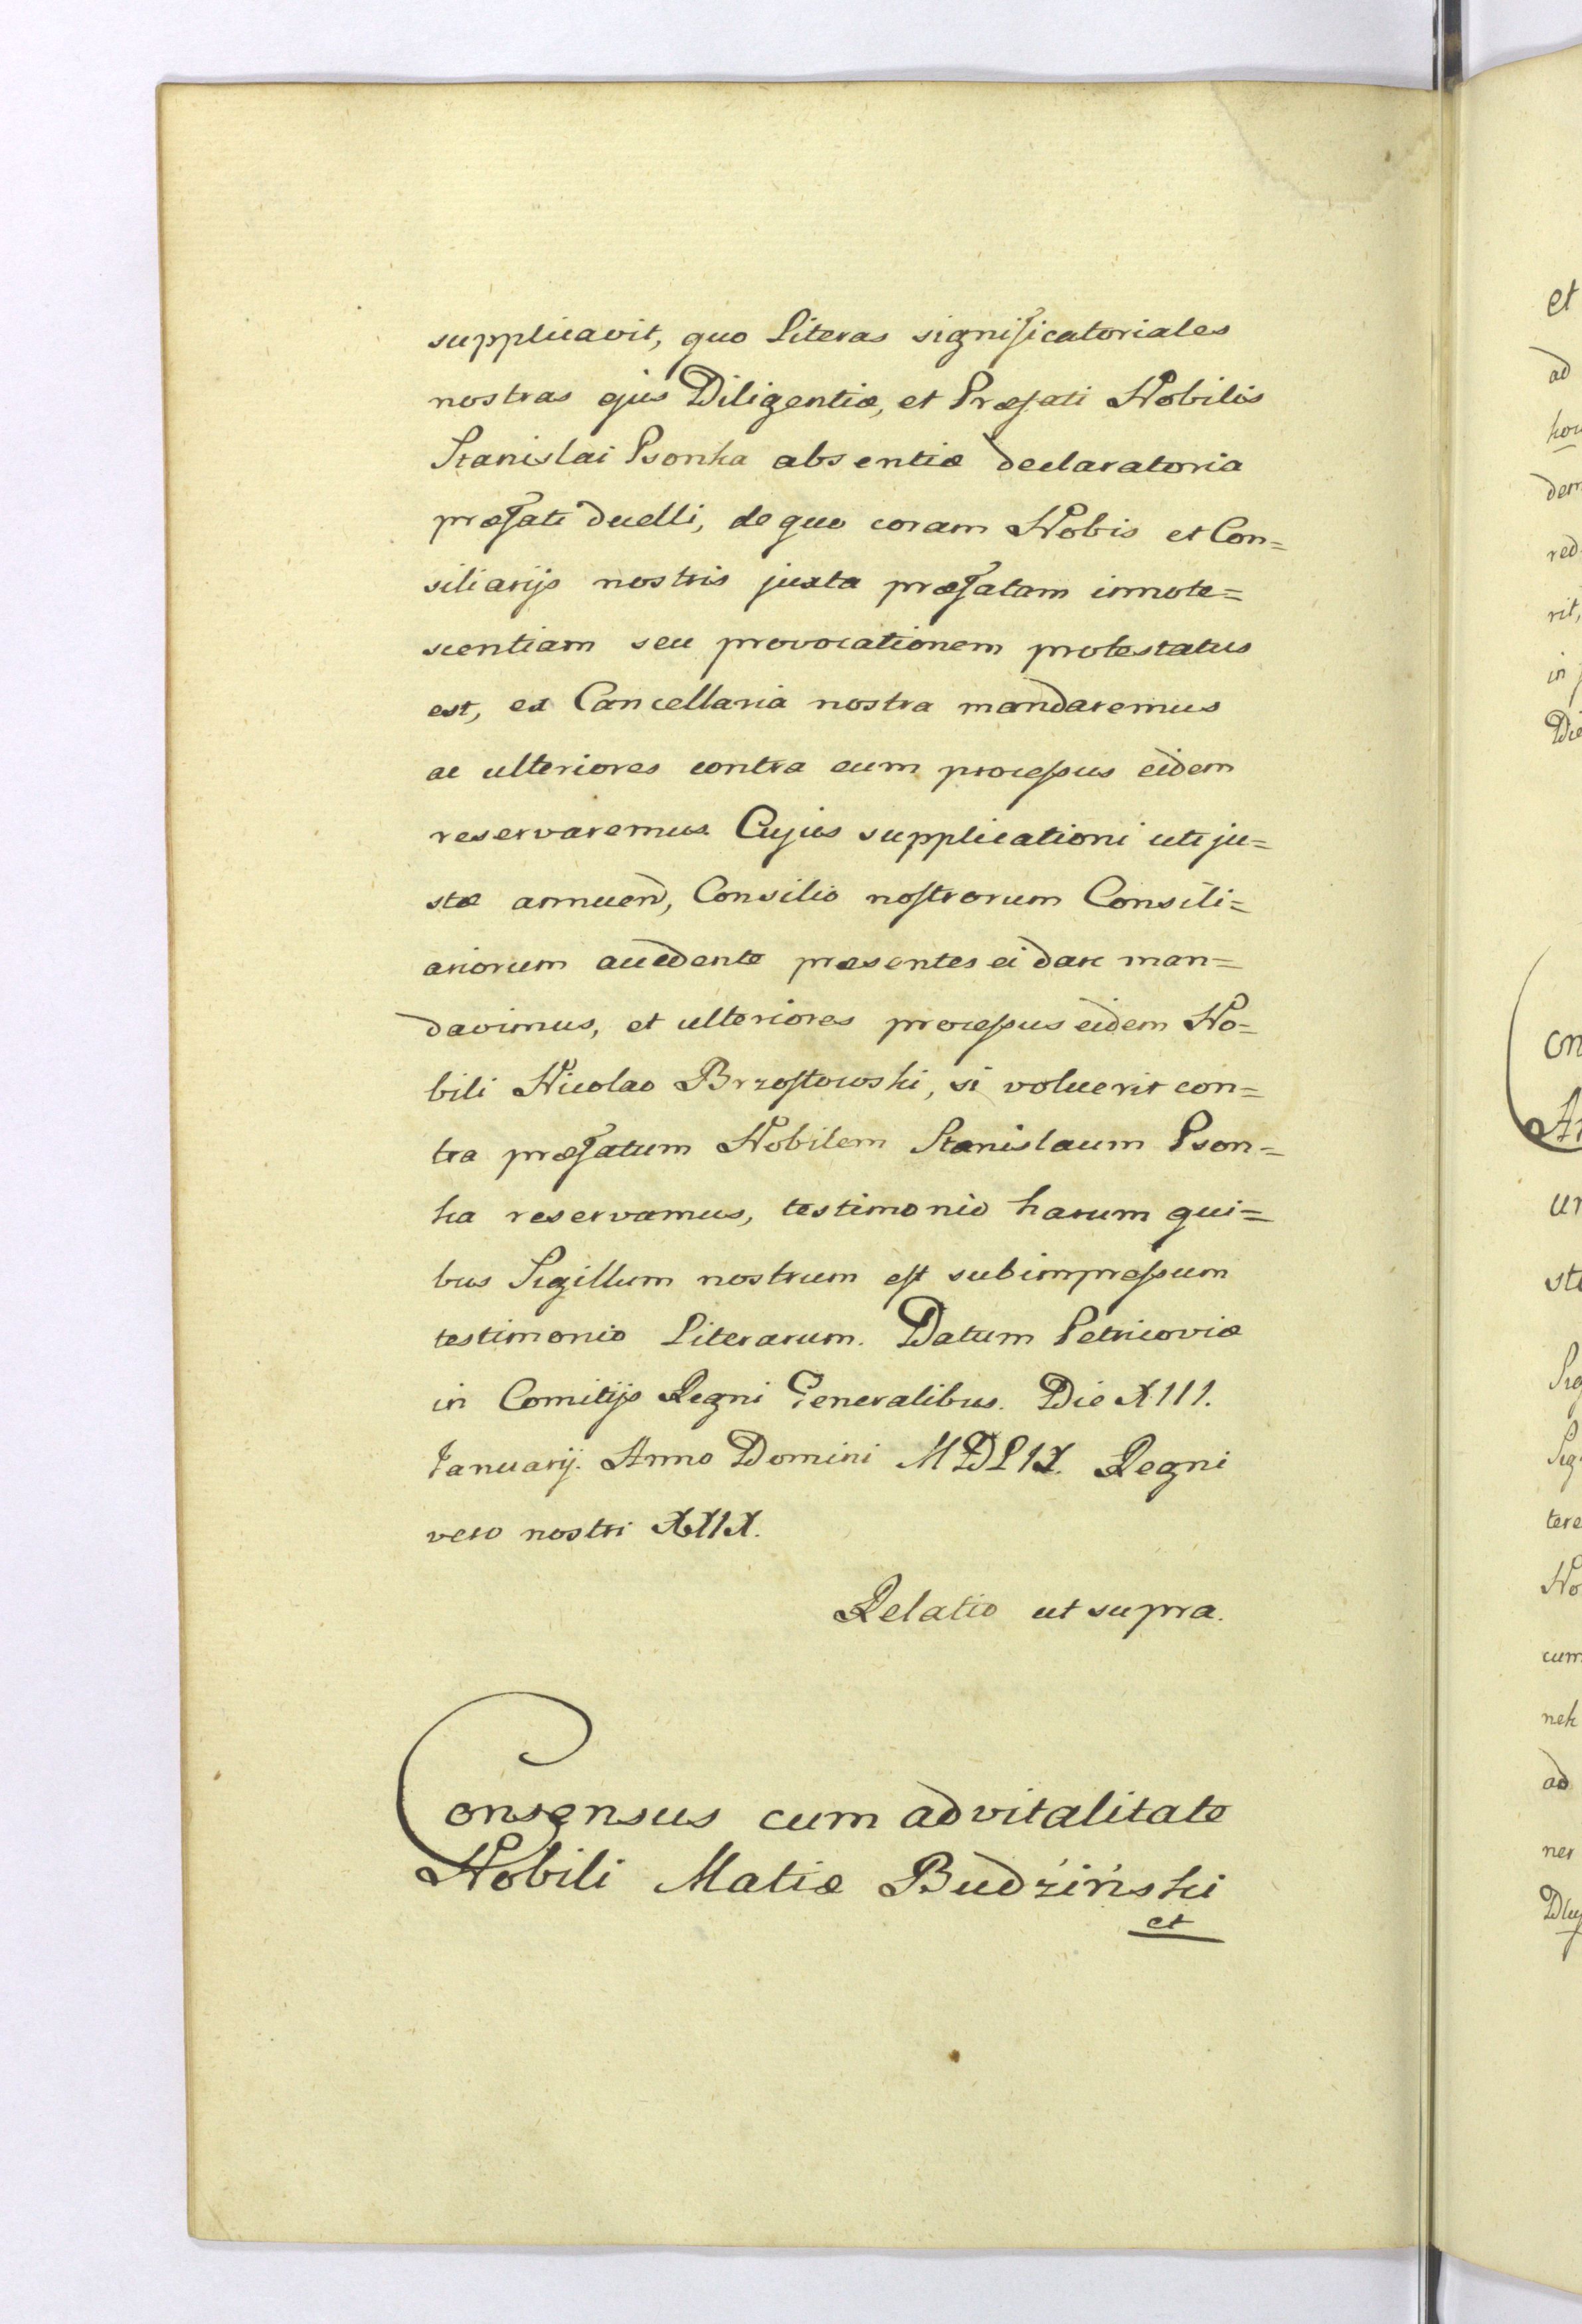 supplicavit, quo Literas significatoriales
nostras ejus Diligentiæ, et Præfati Nobilis
Stanislai Psonka absentiæ declaratoria
præfati duelli, de quo coram Nobis et Con=
siliarijs nostris juxta præfatam innote=
scentiam seu provocationem protestatus
est, ex Cancellaria nostra mandaremus
ac ulteriores contra eum processus eidem
reservaremus. Cujus supplicationi uti ju=
stæ annuend, Consilio nostrorum Consili=
ariorum accedente præsentes ei dare man=
davimus, et ulteriores processus eidem No=
bili Nicolao Brzostowski, si voluerit con=
tra præfatum Nobilem Stanislaum Pson=
ka reservamus, testimonio harum qui=
bus Sigillum nostrum est subimpressum
testimonio Literarum. Datum Petricoviæ
in Comitijs Regni Generalibus. Die XIII.
Januarij. Anno Domini MDLIX. Regni
vero nostri XXIX.
Relatio ut supra.
Consensus cum advitalitate
Nobili Matiæ Budźiński
et
et
ad
dem
red
rit,
in
Die
un
tere
No
cum
nek
ad
ner